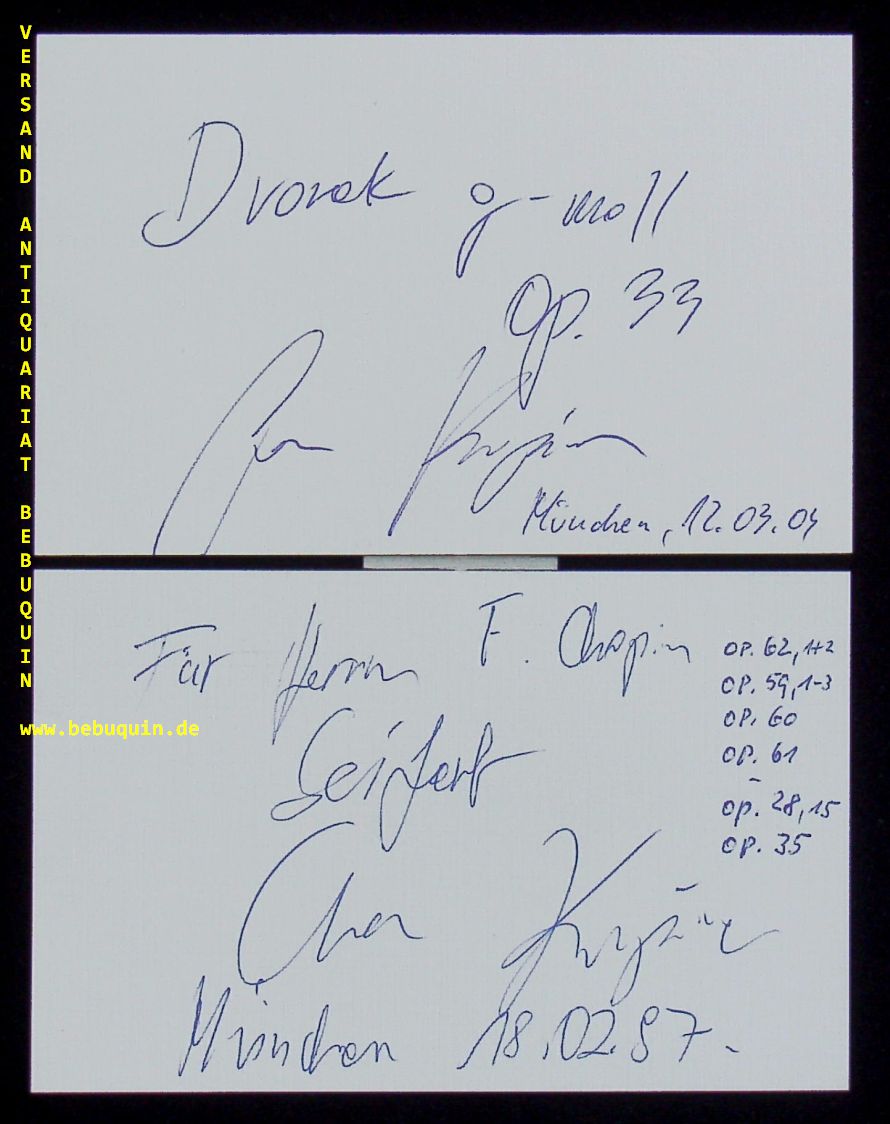 VERSAND ANTIQUARIAT BEBUQUIN
www.bebuquin.de
Dvorak g-moll
Op. 33
München, 12.03.04
Für Herrn F. Chopin
Seifert
München 18.02.87.
OP. 62, 1+2
OP. 59, 1-3
OP. 60
OP. 61
OP. 28, 15
OP. 35